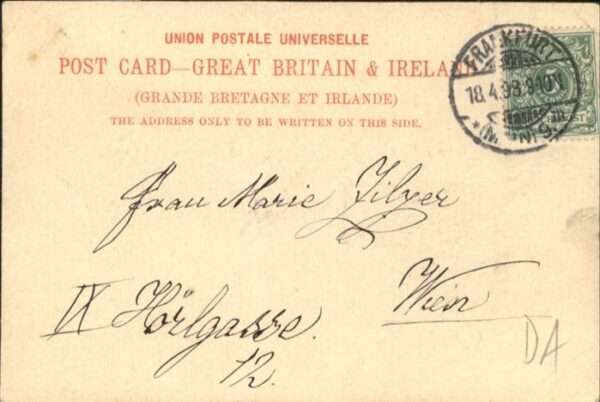 UNION POSTALE UNIVERSELLE
POST CARD—GREAT BRITAIN & IRELAND
(GRANDE BRETAGNE ET IRLANDE)
THE ADDRESS ONLY TO BE WRITTEN ON THIS SIDE.
FRANKFURT
18.4.98.9-10V
(MAIN) 9.
Frau Marie Zilzer
Wien
IX Hörlgasse.
12.
DA